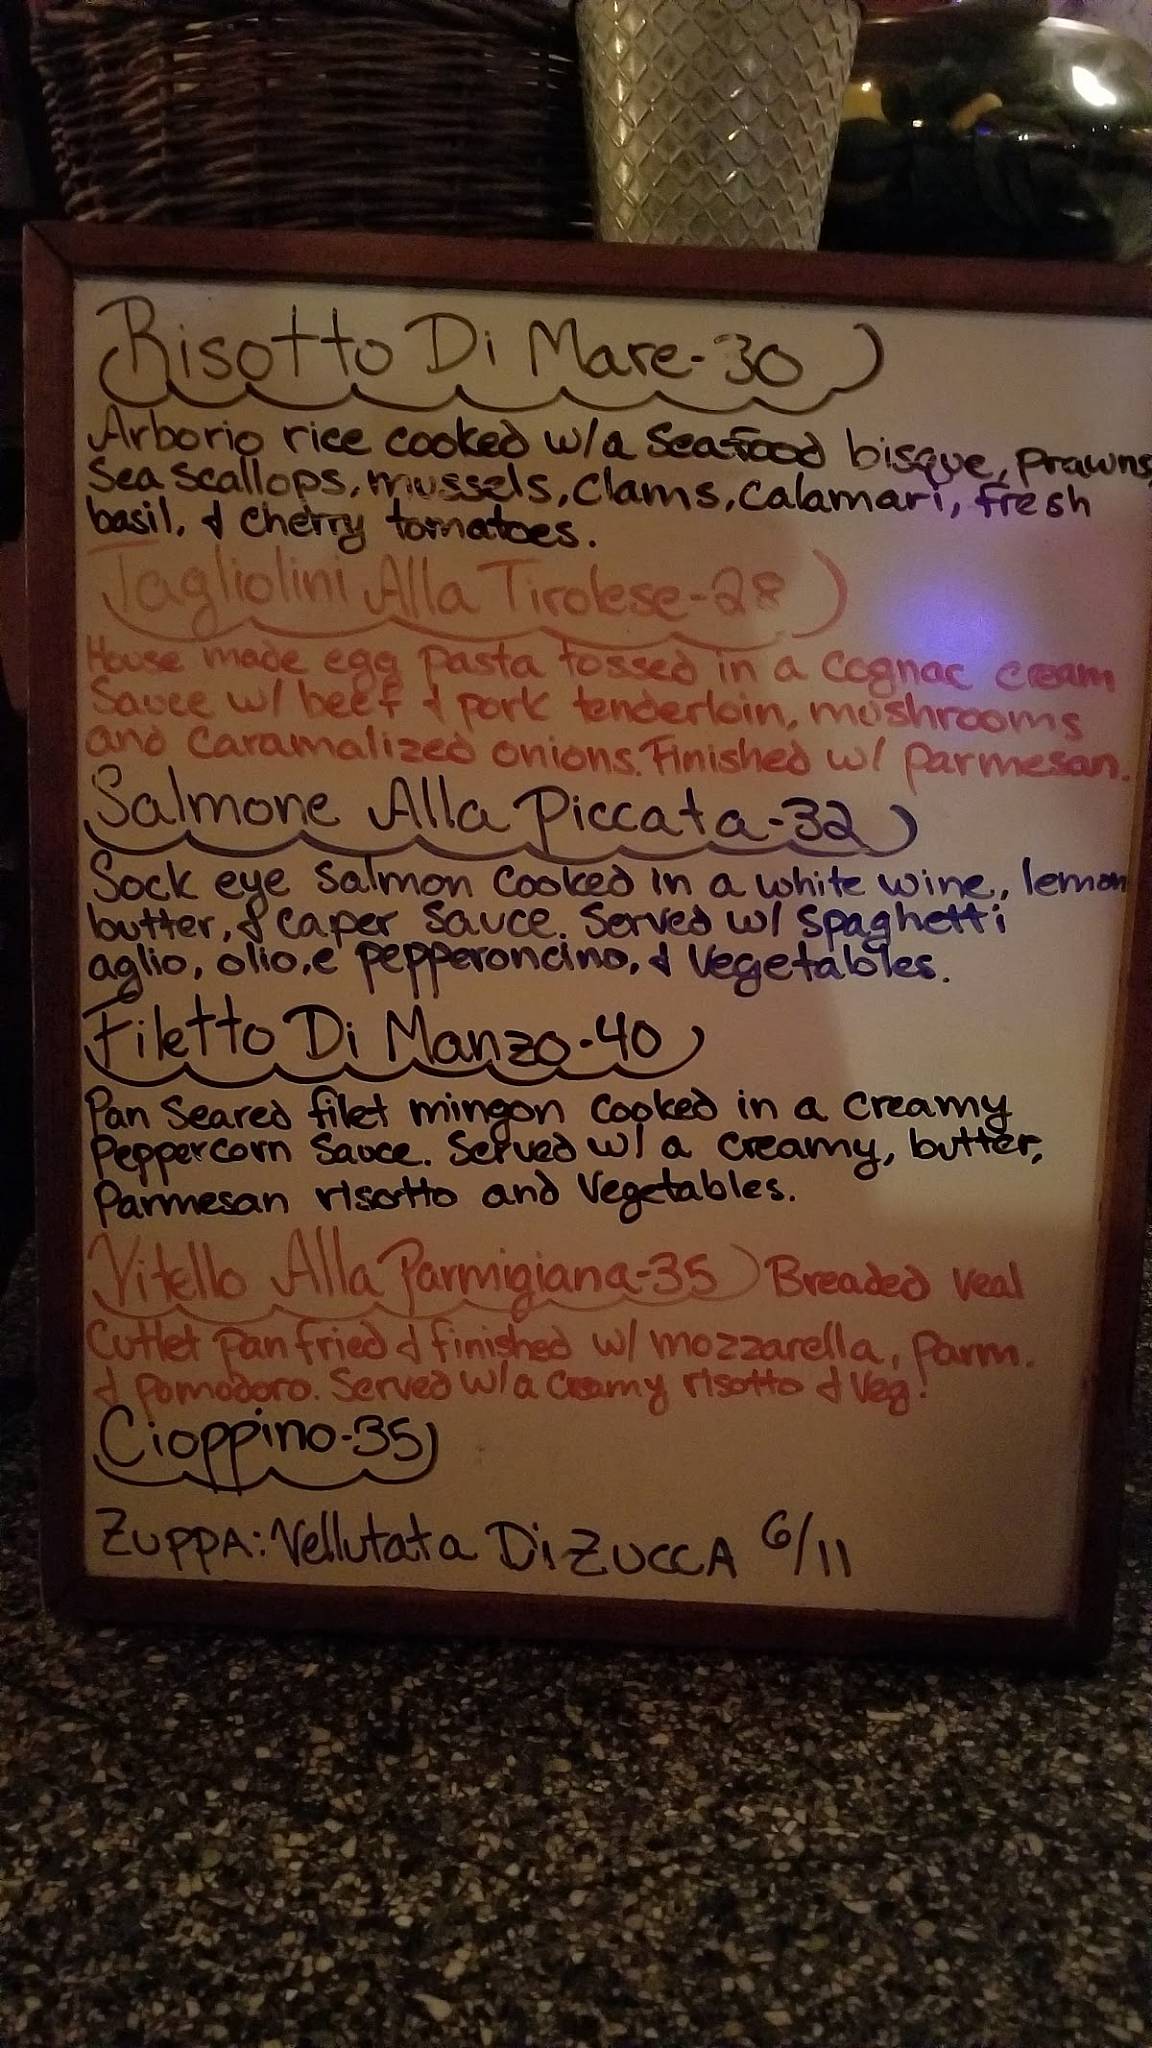 Risotto Di Mare-30
Arborio rice cooked w/a Seafood bisque, prawns,
Sea scallops, mussels, clams, calamari, fresh
basil, & cherry tomatoes.
Tagliolini Alla Tirolese-28
House made egg pasta tossed in a cognac cream
Sauce w/ beef & pork tenderloin, mushrooms
and caramalized onions. Finished w/ parmesan.
Salmone Alla Piccata-32
Sock eye Salmon cooked in a white wine, lemon
butter, & caper sauce. Served w/ spaghetti
aglio, olio, e pepperoncino, & vegetables.
Filetto Di Manzo-40
Pan Seared filet mingon cooked in a creamy
Peppercorn Sauce. Served w/ a creamy, butter,
Parmesan risotto and vegetables.
Vitello Alla Parmigiana-35 Breaded veal
Cutlet pan fried & finished w/ mozzarella, parm.
& pomodoro. Served w/a creamy risotto & veg!
Cioppino-35
ZUPPA: Vellutata Di ZUCCA 6/11